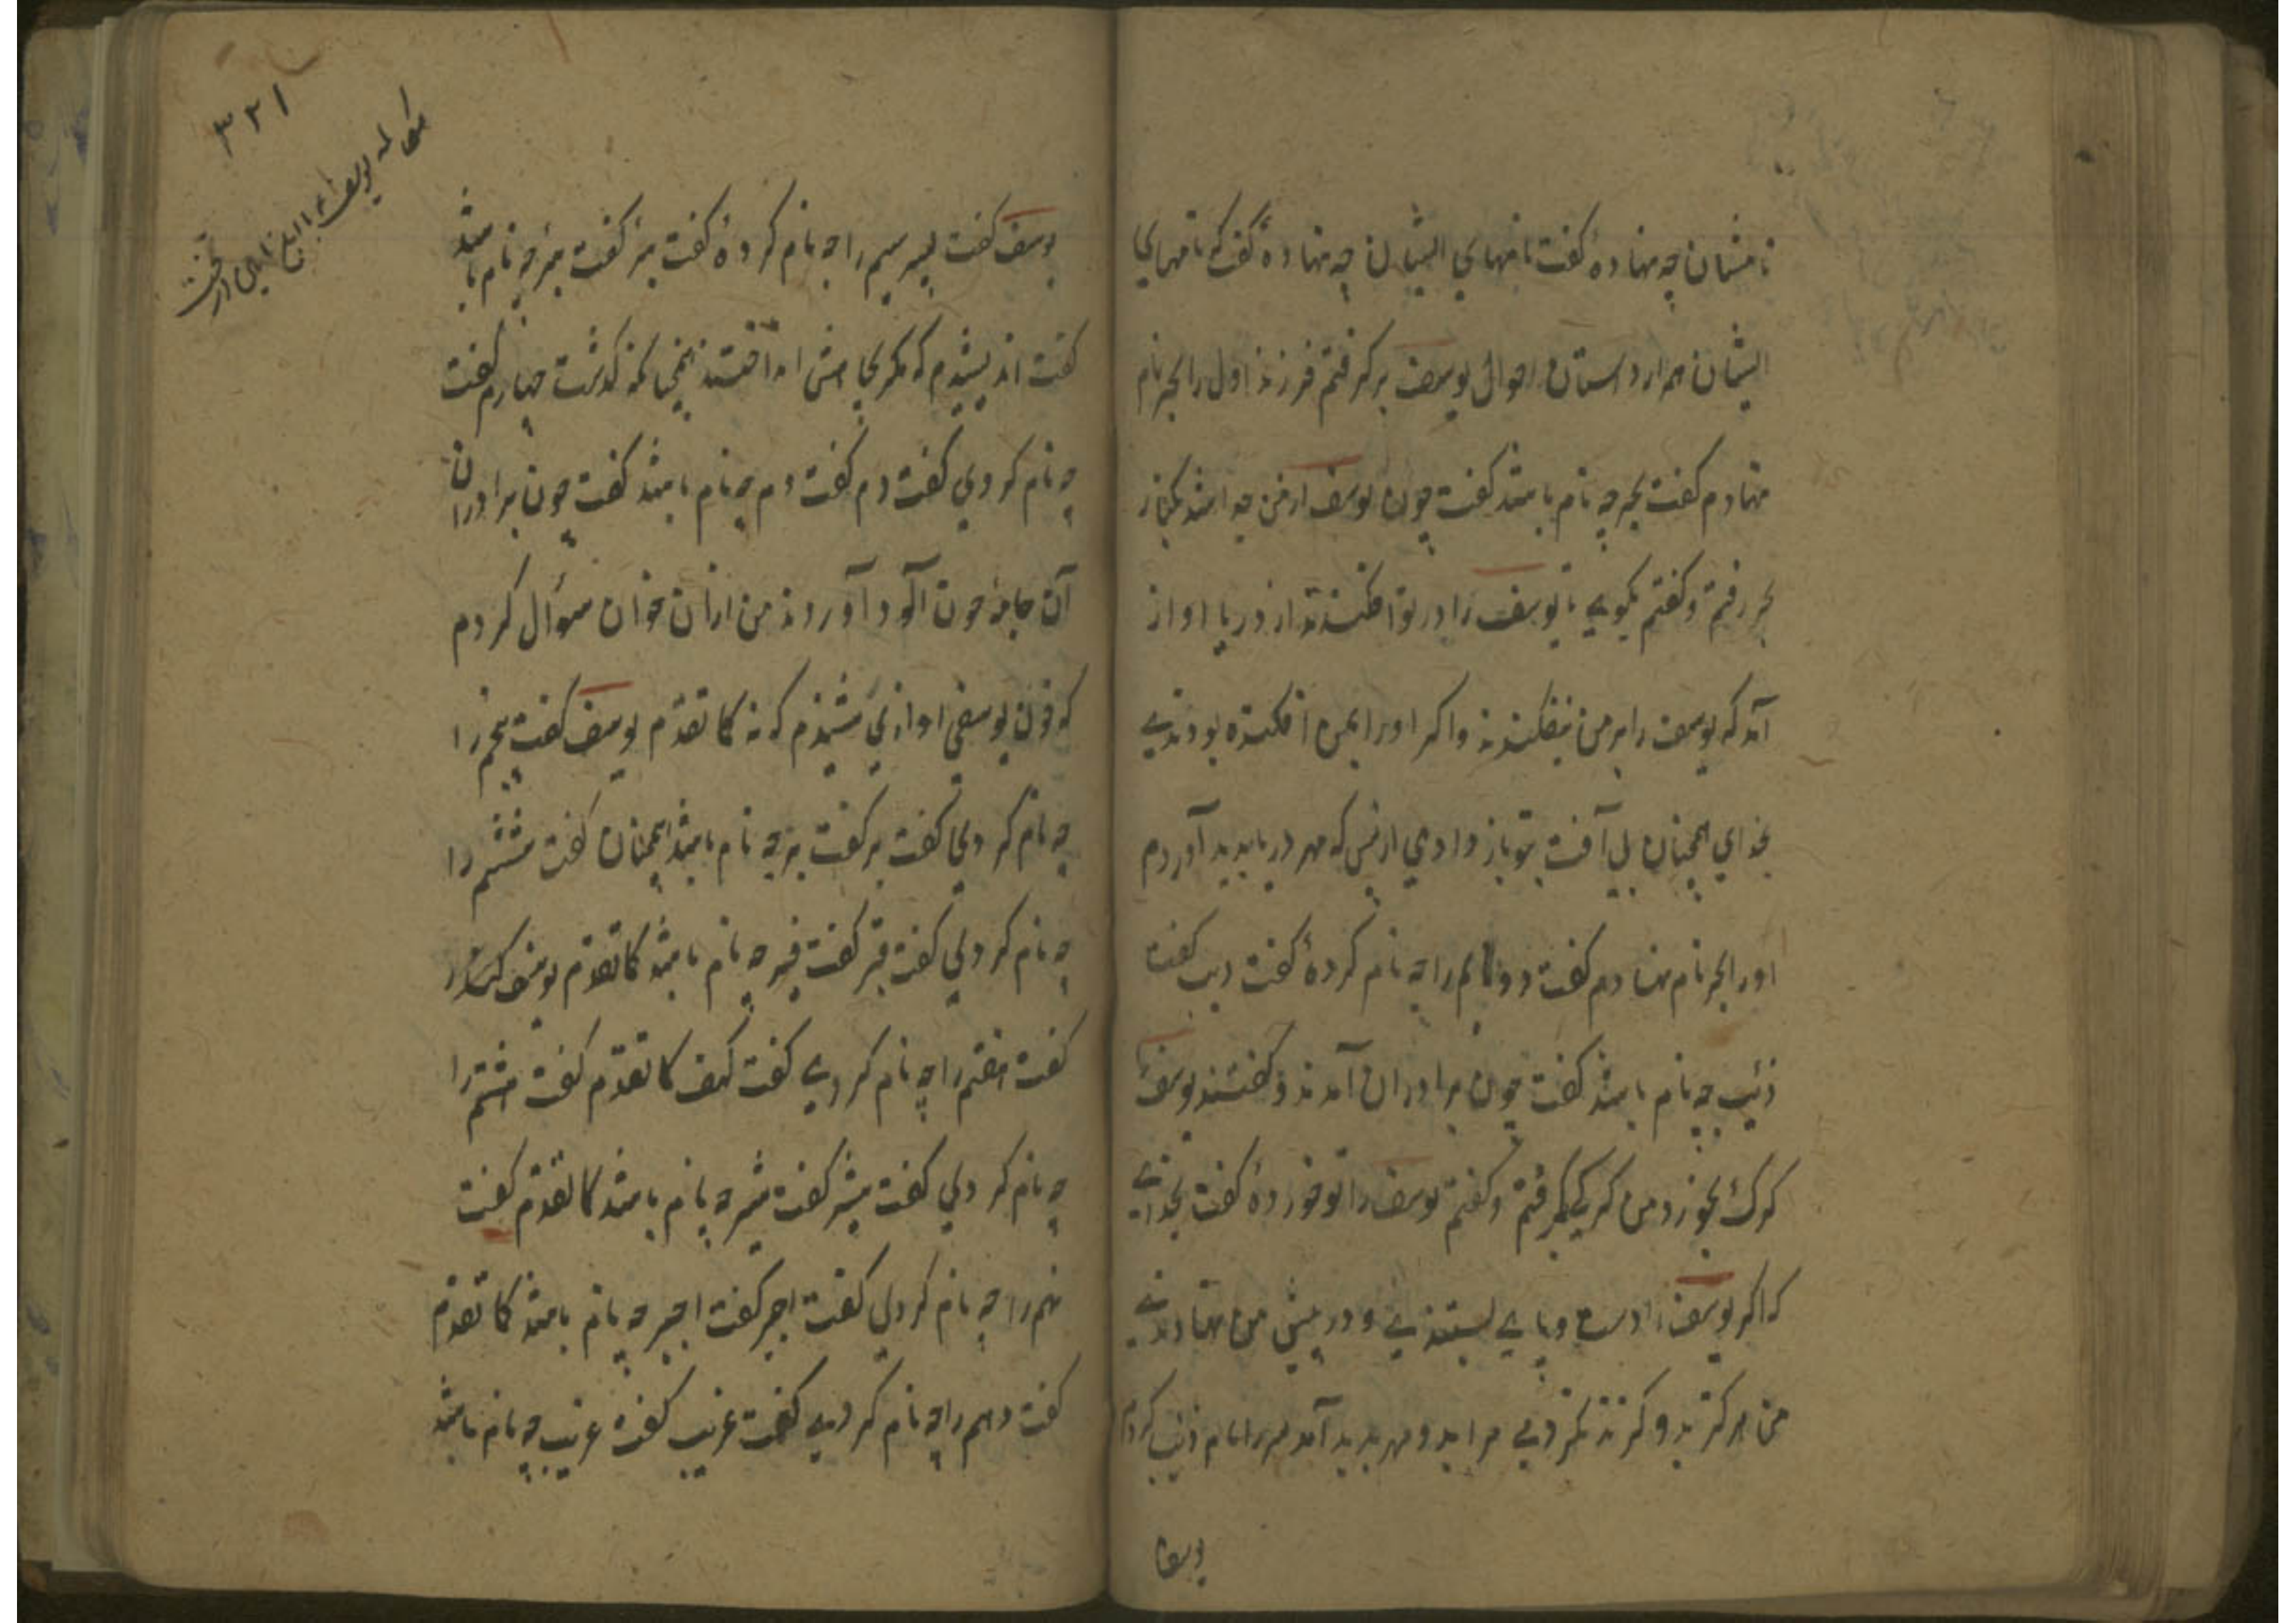 نامشان چه نهادهٔ گفت نامهای ایشان چه نهادهٔ گفت که نامهای
ایشان هم از داستان احوال یوسف برگرفتم فرزند اول را بحر نام
نهادم گفت بحر چه نام باشد گفت چون یوسف از من جدا شد بکنار
بحر رفتم و گفتم بگوی تا یوسف را در تو افکندند از دریا اواز
آمد که یوسف را بر من نیفکندند واکر اورا بمن افکنده بودندی
بخدای همچنان بی آفت بتو باز دادمی از بس که مهر دریا بدید آوردم
اورا بحر نام نهادم گفت دوم را چه نام کردهٔ گفت ذیب گفت
ذئیب چه نام باشد گفت چون برادران آمدند و گفتند یوسف
کرک بخورد من کرکی بکرفتم و گفتم یوسف را تو خوردهٔ گفت بخدای
که اکر یوسف را دست و پای بستندی و در پیش من نهادندی
من هرکز بدو کزند نکردمی مرا بدو مهر بدید آمد را نام ذئیب کردم
یوسف
۳۳۱
یوسف گفت پسر سیم را چه نام کردهٔ گفت بئر گفت بئر چه نام باشد
گفت اندیشیدم که مکر بچاهش انداختند همچنانکه گذشت چهارم گفت
چه نام کردی گفت دم گفت دم چه نام باشد گفت چون برادران
آن جامه خون آلود آوردند من ازان خون سوال کردم
که خون یوسفی اوازی شنیدم که نه کما تقدم یوسف گفت پنجم را
چه نام کردی گفت گفت چه نام باشد همچنان گفت ششم را
چه نام کردی گفت گفت چه نام باشد کما تقدم یوسف
گفت هفتم را چه نام کردی گفت کهف کما تقدم گفت هشتم را
چه نام کردی گفت گفت چه نام باشد کما تقدم گفت
نهم را چه نام کردی گفت اجیر گفت اجیر چه نام باشد کما تقدم
گفت دهم را چه نام کردی گفت غریب گفت غریب چه نام باشد